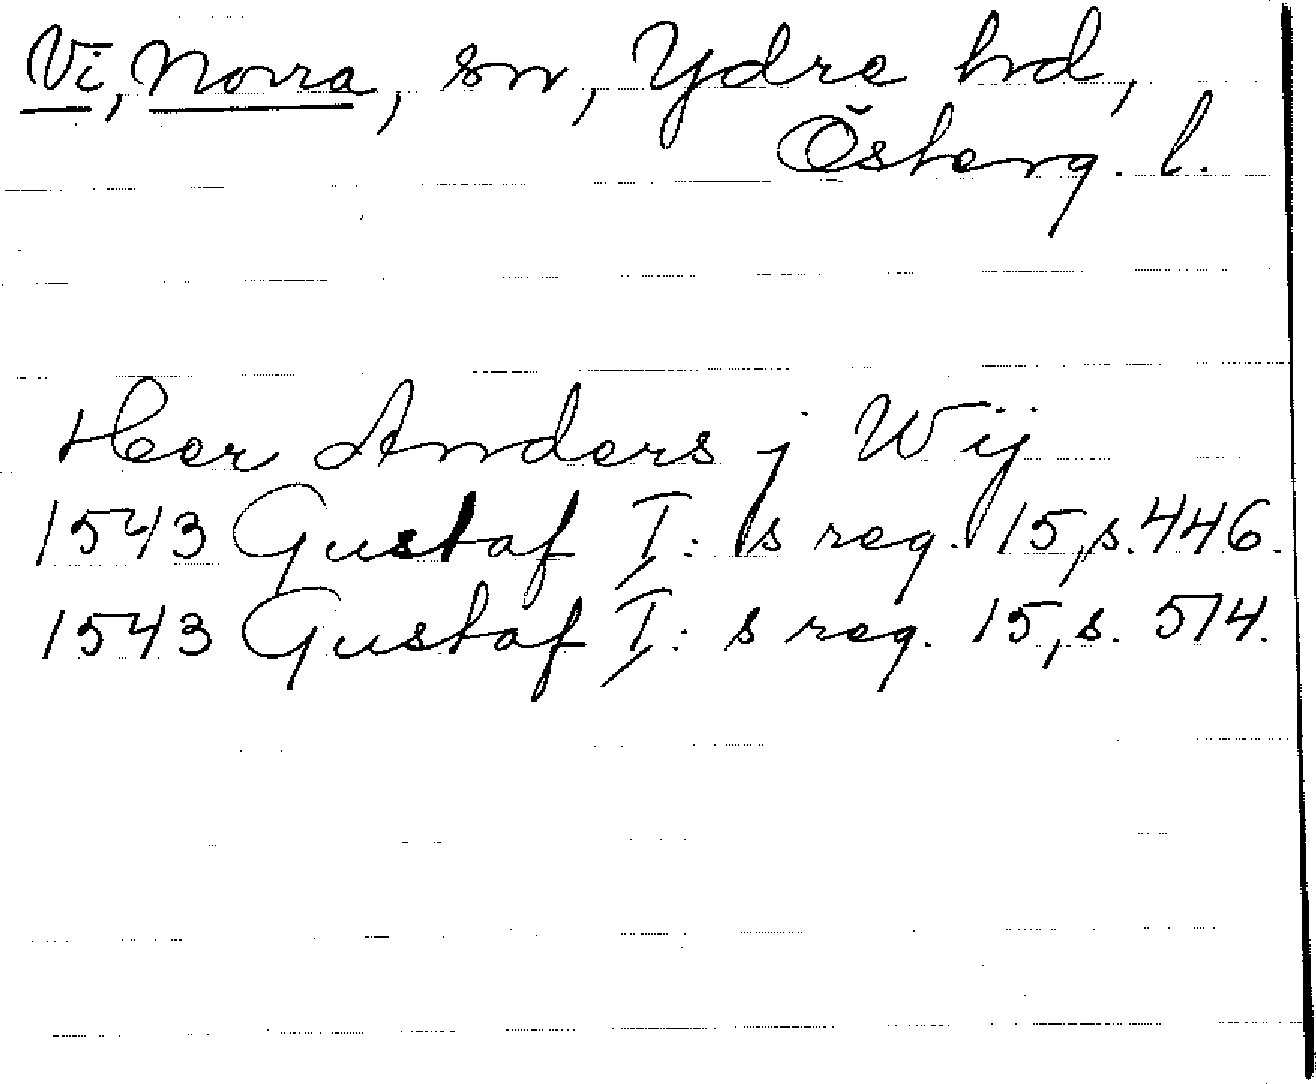 Vi, Norra, sn, Ydre hd,
Österg. l.
Heer Anders j Wij
1543 Gustaf I:s reg. 15, s. 446.
1543 Gustaf I:s reg. 15, s. 514.